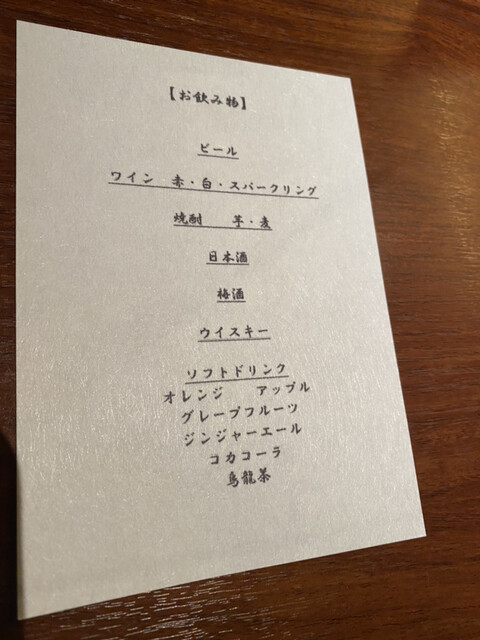 【お飲み物】
ビール
ワイン　赤・白・スパークリング
焼酎　芋・麦
日本酒
梅酒
ウイスキー
ソフトドリンク
オレンジ　アップル
グレープフルーツ
ジンジャーエール
コカコーラ
烏龍茶